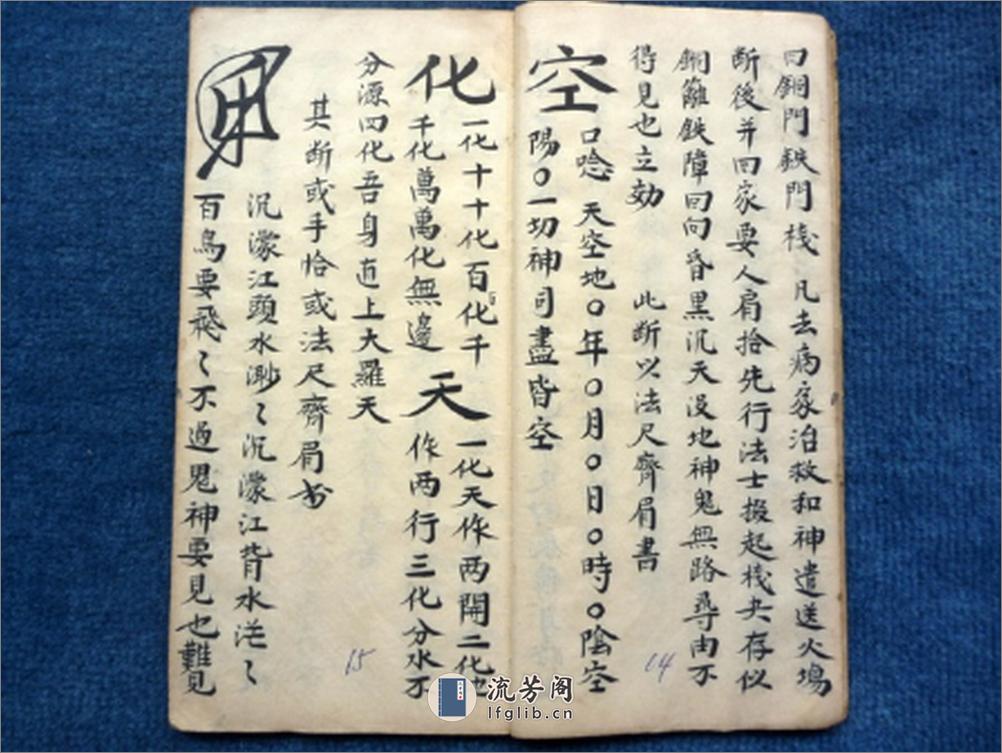 曰銅門鉄門棧 凡去病家治救和神遣送火場
断後并回家要人肩拾先行法士掇起棧央存似
銅籬鉄障回向昏黑沉天没地神鬼無路尋由不
得見也立効 此断以法尺齊眉書
空 口唸 天空地〇年〇月〇日〇時〇陰空
陽〇一切神司盡皆空
14
化 一化十十化百百化千
千化萬萬化無邊
天 一化天作两開二化地
作两行三化分水不
分源四化吾身直上大羅天
其断或手恰或法尺齊眉書
沉濛江頭水渺〻沉濛江背水茫〻
百鳥要飛〻不過鬼神要見也難見
15
流芳阁
lfglib.cn